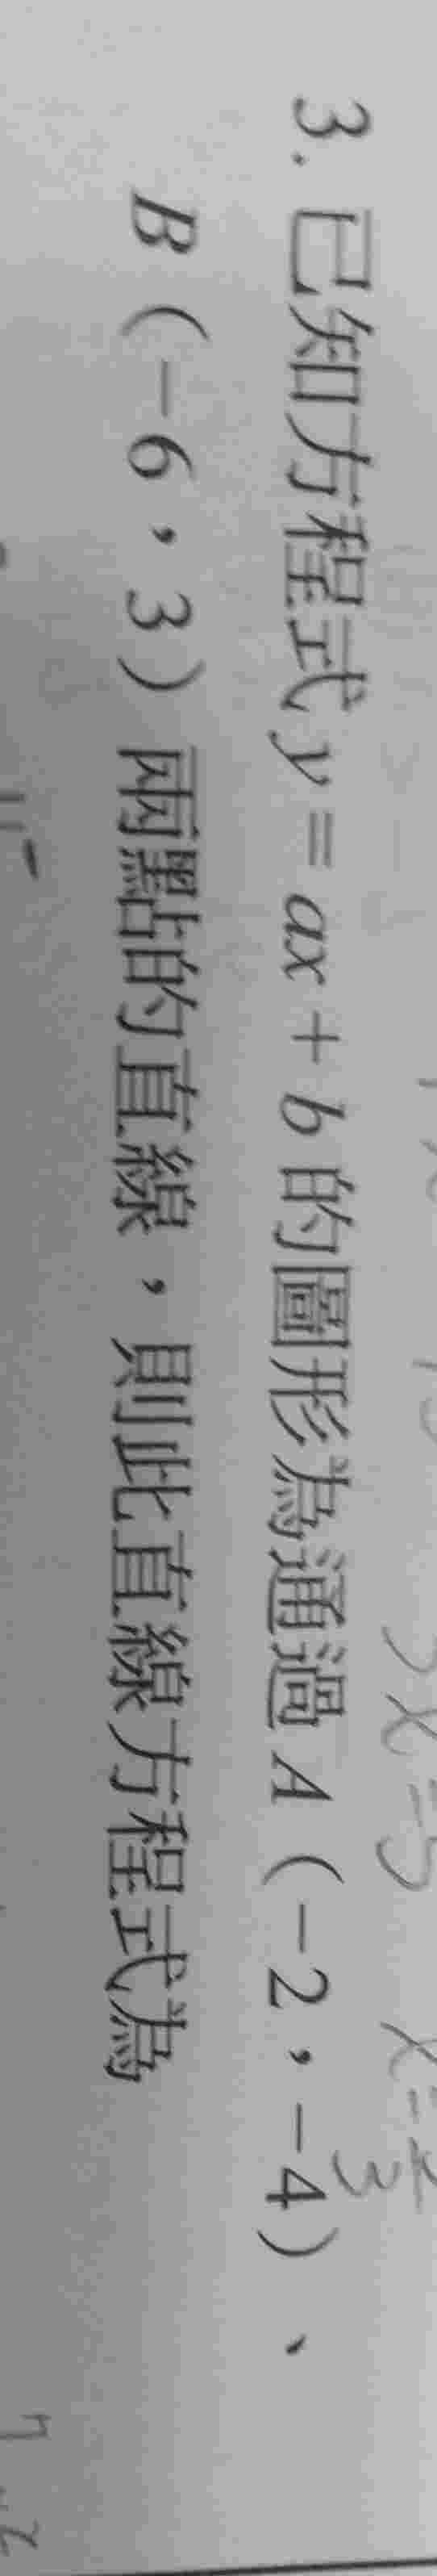 3. 已知方程式 y = ax + b 的圖形為通過 A(-2,-4)、
B(-6,3)兩點的直線,則此直線方程式為